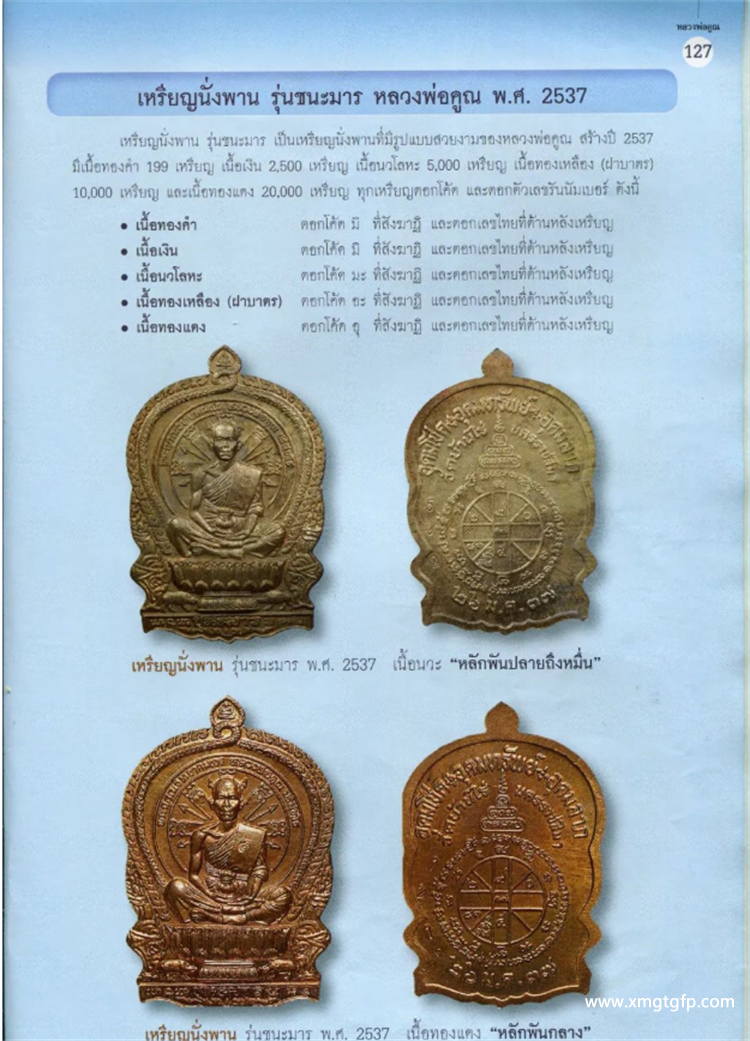 หลวงพ่อคูณ
127
เหรียญนั่งพาน รุ่นชนะมาร หลวงพ่อคูณ พ.ศ. 2537
เหรียญนั่งพาน รุ่นชนะมาร เป็นเหรียญนั่งพานที่มีรูปแบบสวยงามของหลวงพ่อคูณ สร้างปี 2537
มีเนื้อทองคำ 199 เหรียญ เนื้อเงิน 2,500 เหรียญ เนื้อนวโลหะ 5,000 เหรียญ เนื้อทองเหลือง (ฝาบาตร)
10,000 เหรียญ และเนื้อทองแดง 20,000 เหรียญ ทุกเหรียญตอกโค้ด และตอกตัวเลขรันนัมเบอร์ ดังนี้
• เนื้อทองคำ ตอกโค้ด มิ ที่สังฆาฏิ และตอกเลขไทยที่ด้านหลังเหรียญ
• เนื้อเงิน ตอกโค้ด มิ ที่สังฆาฏิ และตอกเลขไทยที่ด้านหลังเหรียญ
• เนื้อนวโลหะ ตอกโค้ด มะ ที่สังฆาฏิ และตอกเลขไทยที่ด้านหลังเหรียญ
• เนื้อทองเหลือง (ฝาบาตร) ตอกโค้ด อะ ที่สังฆาฏิ และตอกเลขไทยที่ด้านหลังเหรียญ
• เนื้อทองแดง ตอกโค้ด อุ ที่สังฆาฏิ และตอกเลขไทยที่ด้านหลังเหรียญ
๒๖ ม.ค. ๓๗
เหรียญนั่งพาน รุ่นชนะมาร พ.ศ. 2537 เนื้อนวะ “หลักพันปลายถึงหมื่น”
๒๖ ม.ค. ๓๗
www.xmgtgfp.com
เหรียญนั่งพาน รุ่นชนะมาร พ.ศ. 2537 เนื้อทองแดง “หลักพันกลาง”